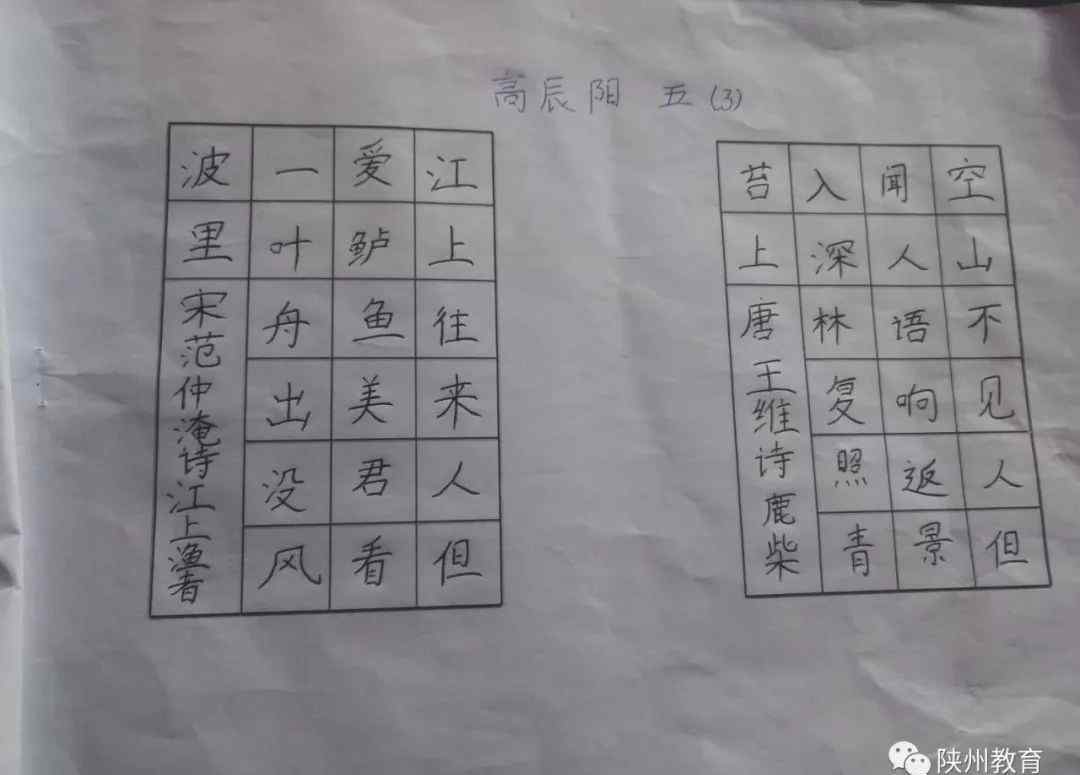 高辰阳 五(3)
空山不见人但
闻人语响返景
入深林复照青
苔上唐王维诗鹿柴
江上往来人但
爱鲈鱼美君看
一叶舟出没风
波里宋范仲淹诗江上渔者
陕州教育